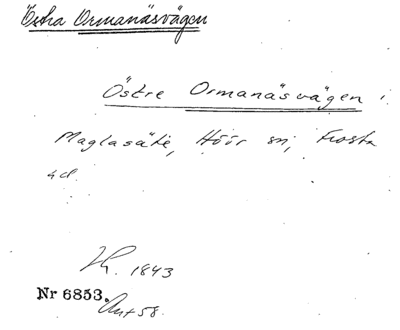 Östra Ormanäsvägen
Östre Ormanäsvägen
Maglasäte, Höör sn, Frosta
hd.
1843
Nr 6853.
Ant 58.